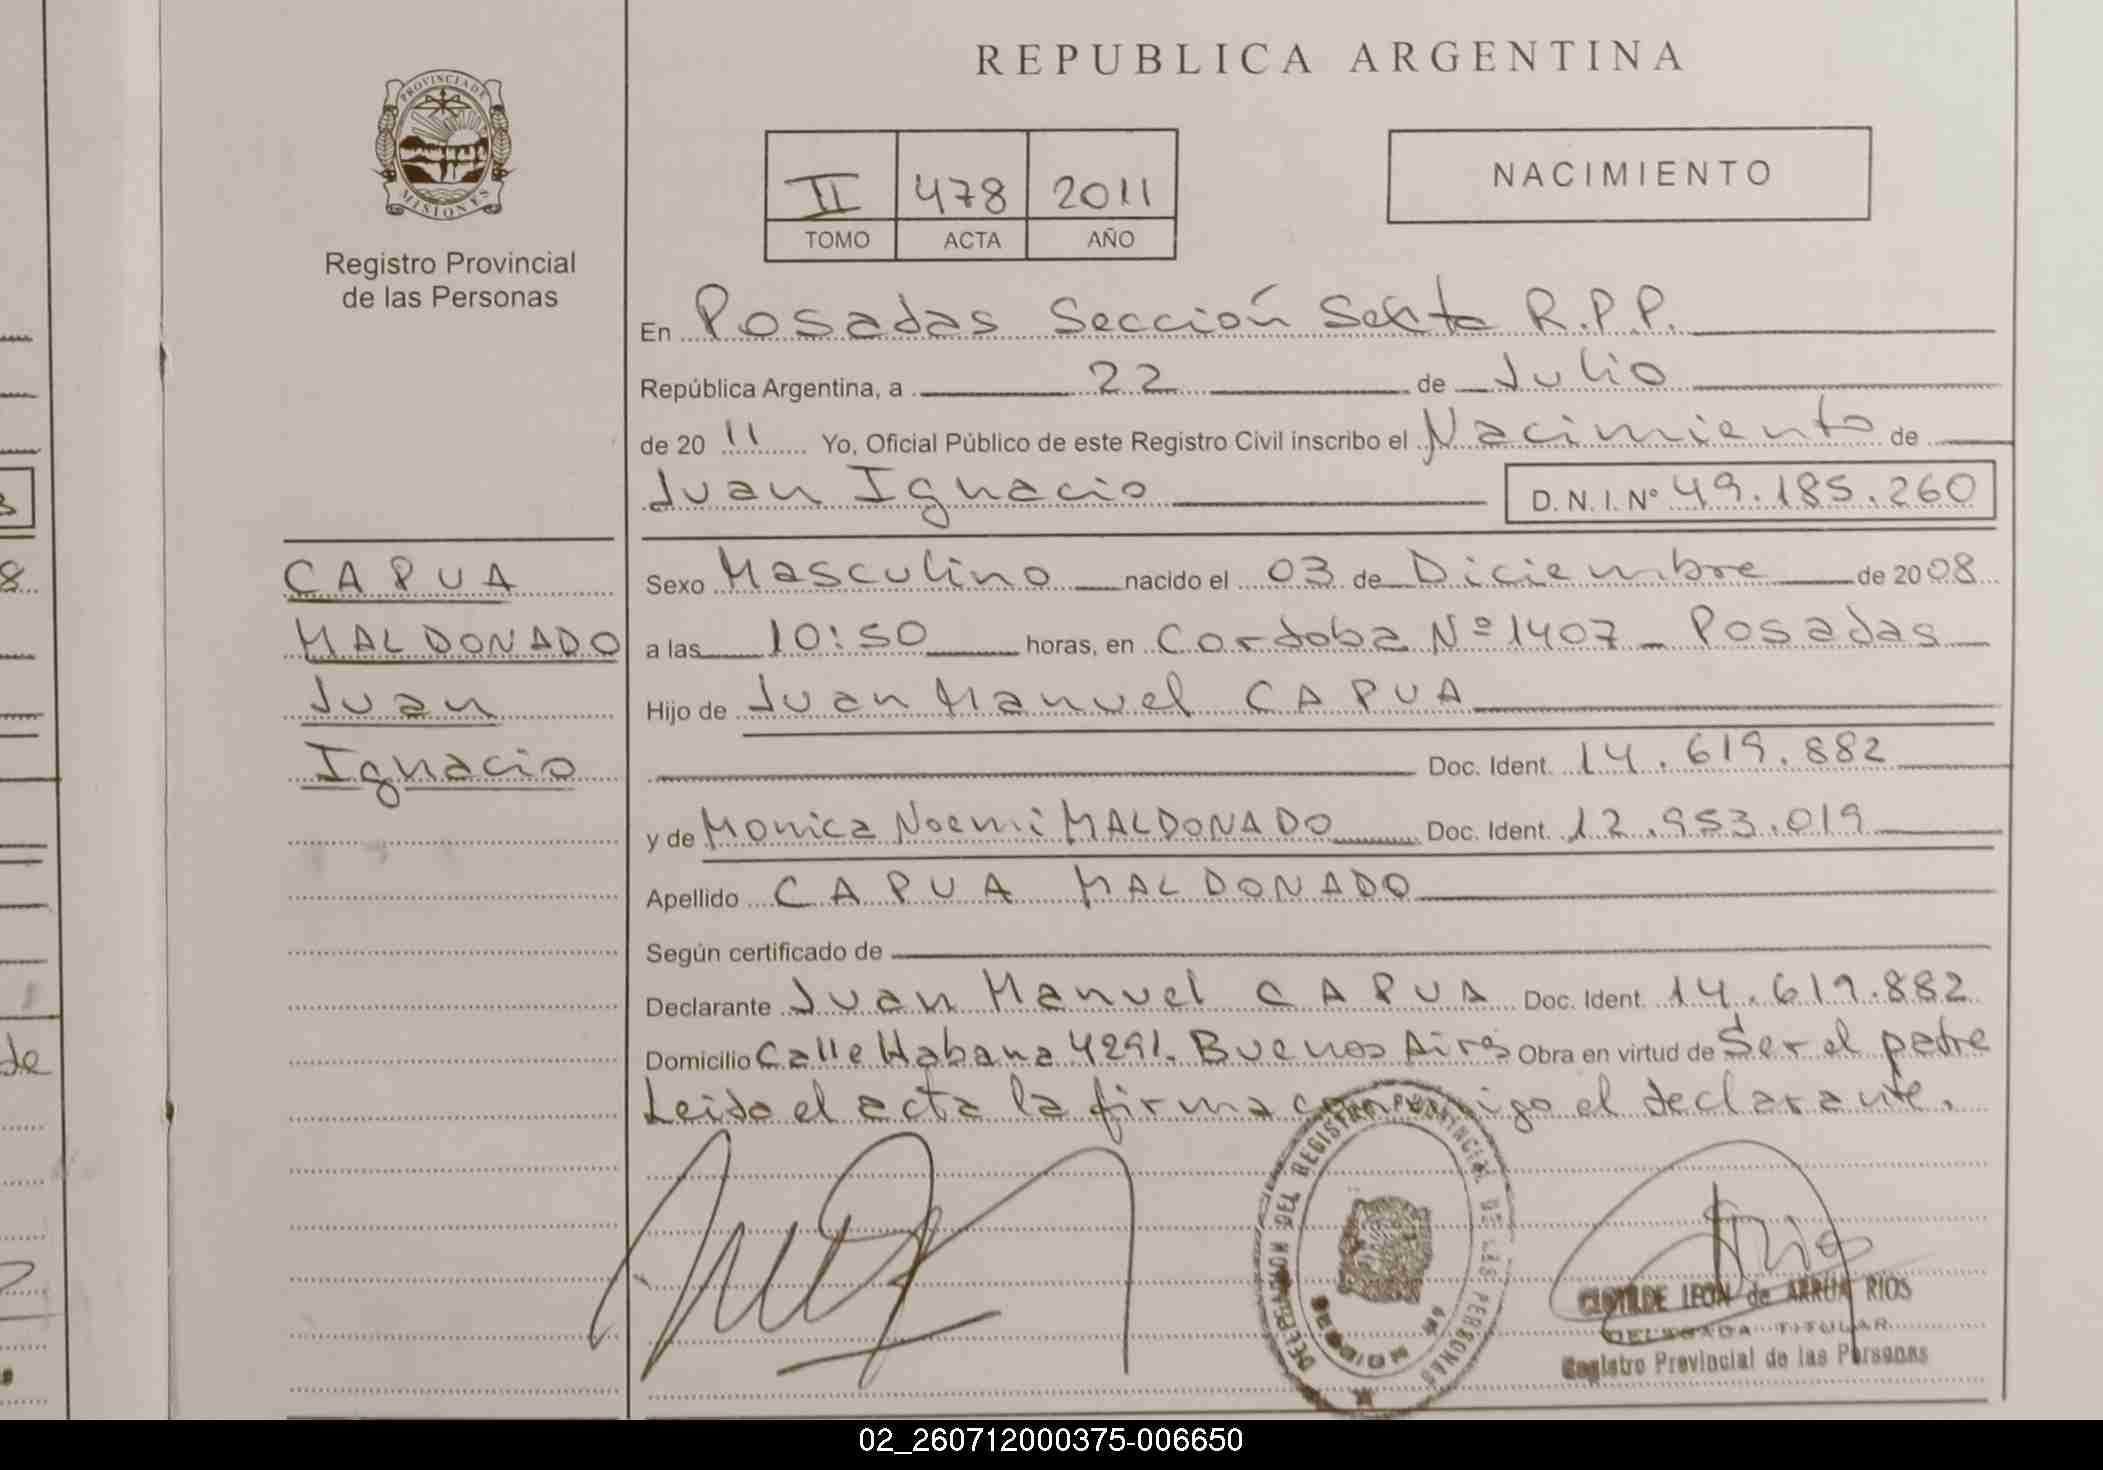 REPUBLICA ARGENTINA
PROVINCIA DE
MISIONES
Registro Provincial
de las Personas
II 478 2011
TOMO ACTA AÑO
NACIMIENTO
En Posadas Sección Sexta R.P.P.
República Argentina, a 22 de Julio
de 20 11 Yo, Oficial Público de este Registro Civil inscribo el Nacimiento de
Juan Ignacio D.N.I. Nº 49.185.260
CAPUA
MALDONADO
Juan
Ignacio
Sexo Masculino nacido el 03 de Diciembre de 2008
a las 10:50 horas, en Cordoba Nº 1407 - Posadas
Hijo de Juan Manuel CAPUA
Doc. Ident. 14.619.882
y de Monica Noemi MALDONADO Doc. Ident. 12.953.019
Apellido CAPUA MALDONADO
Según certificado de
Declarante Juan Manuel CAPUA Doc. Ident. 14.619.882
Domicilio Calle Habana 4291. Buenos Aires Obra en virtud de Ser el padre
Leida el acta la firma conmigo el declarante.
DELEGACION DEL REGISTRO PROVINCIAL DE LAS PERSONAS
MISIONES
CLOTILDE LEON de ARRUA RIOS
DELEGADA TITULAR
Registro Provincial de las Personas
de
02_260712000375-006650